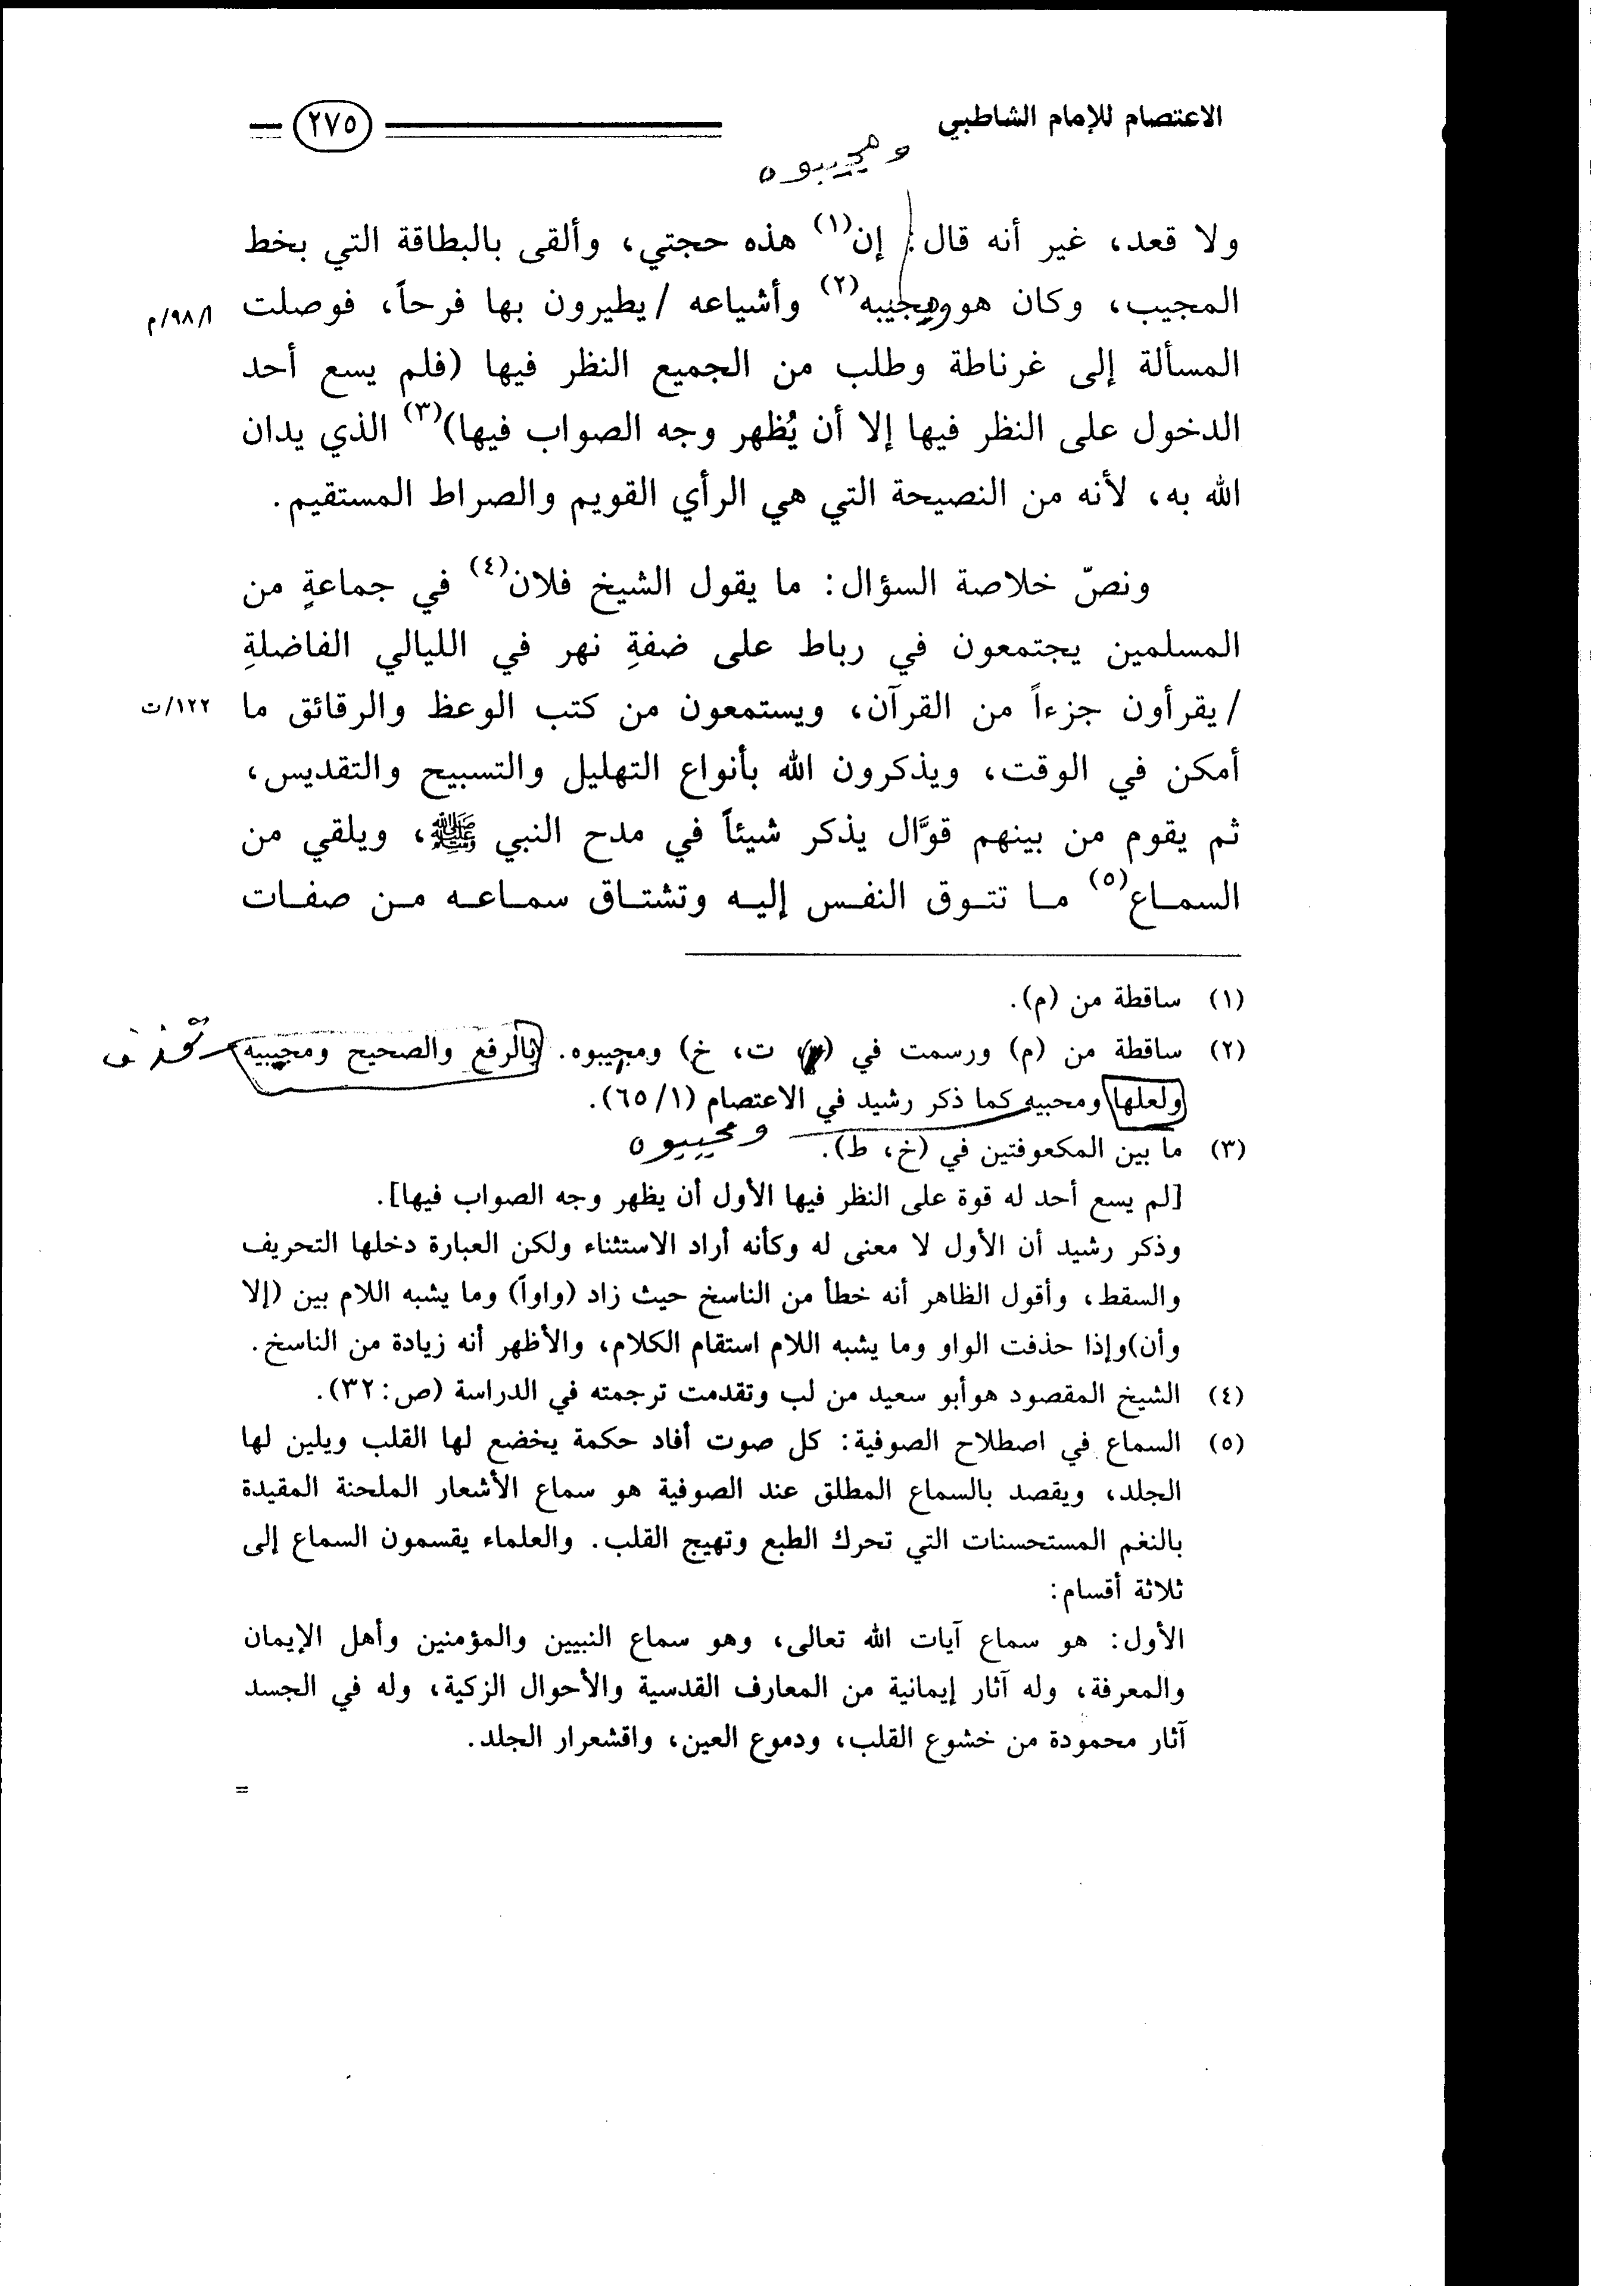 الاعتصام للإمام الشاطبي
٢٧٥
ومجيبوه
ولا قعد، غير أنه قال: إن(١) هذه حجتي، وألقى بالبطاقة التي بخط
المجيب، وكان هو ومجيبه(٢) وأشياعه /يطيرون بها فرحاً، فوصلت
أ/٩٨/م
المسألة إلى غرناطة وطلب من الجميع النظر فيها (فلم يسع أحد
الدخول على النظر فيها إلا أن يُظهر وجه الصواب فيها)(٣) الذي يدان
الله به، لأنه من النصيحة التي هي الرأي القويم والصراط المستقيم.
ونصّ خلاصة السؤال: ما يقول الشيخ فلان(٤) في جماعةٍ من
المسلمين يجتمعون في رباط على ضفةِ نهر في الليالي الفاضلةِ
/يقرأون جزءاً من القرآن، ويستمعون من كتب الوعظ والرقائق ما
١٢٢/ت
أمكن في الوقت، ويذكرون الله بأنواع التهليل والتسبيح والتقديس،
ثم يقوم من بينهم قوَّال يذكر شيئاً في مدح النبي ﷺ، ويلقي من
السماع(٥) ما تتوق النفس إليه وتشتاق سماعه من صفات
(١) ساقطة من (م).
(٢) ساقطة من (م) ورسمت في ( ت، خ) ومجيبوه. بالرفع والصحيح ومجيبيه
تحذف
ولعلها ومحبيه كما ذكر رشيد في الاعتصام (٦٥/١).
ومجيبوه
(٣) ما بين المكعوفتين في (خ، ط).
[لم يسع أحد له قوة على النظر فيها الأول أن يظهر وجه الصواب فيها].
وذكر رشيد أن الأول لا معنى له وكأنه أراد الاستثناء ولكن العبارة دخلها التحريف
والسقط، وأقول الظاهر أنه خطأ من الناسخ حيث زاد (واواً) وما يشبه اللام بين (إلا
وأن)وإذا حذفت الواو وما يشبه اللام استقام الكلام، والأظهر أنه زيادة من الناسخ.
(٤) الشيخ المقصود هوأبو سعيد من لب وتقدمت ترجمته في الدراسة (ص:٣٢).
(٥) السماع في اصطلاح الصوفية: كل صوت أفاد حكمة يخضع لها القلب ويلين لها
الجلد، ويقصد بالسماع المطلق عند الصوفية هو سماع الأشعار الملحنة المقيدة
بالنغم المستحسنات التي تحرك الطبع وتهيج القلب. والعلماء يقسمون السماع إلى
ثلاثة أقسام:
الأول: هو سماع آيات الله تعالى، وهو سماع النبيين والمؤمنين وأهل الإيمان
والمعرفة، وله آثار إيمانية من المعارف القدسية والأحوال الزكية، وله في الجسد
آثار محمودة من خشوع القلب، ودموع العين، واقشعرار الجلد.
=